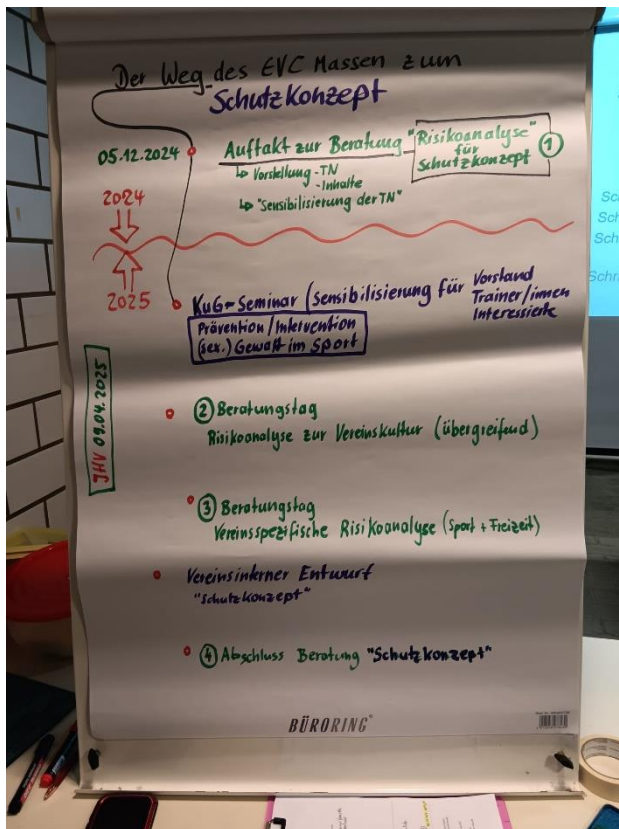 Der Weg des EVC Massen zum
Schutzkonzept
05.12.2024
Auftakt zur Beratung "Risikoanalyse" für Schutzkonzept ①
↳ Vorstellung - TN
- Inhalte
↳ "Sensibilisierung der TN"
2024
2025
KuG-Seminar (Sensibilisierung für Vorstand
Trainer/innen
Interessierte
Prävention/Intervention
(sex.) Gewalt im Sport
JHV 09.04.2025
② Beratungstag
Risikoanalyse zur Vereinskultur (übergreifend)
③ Beratungstag
Vereinsspezifische Risikoanalyse (Sport + Freizeit)
Vereinsinterner Entwurf
"Schutzkonzept"
④ Abschluss Beratung "Schutzkonzept"
BÜRORING